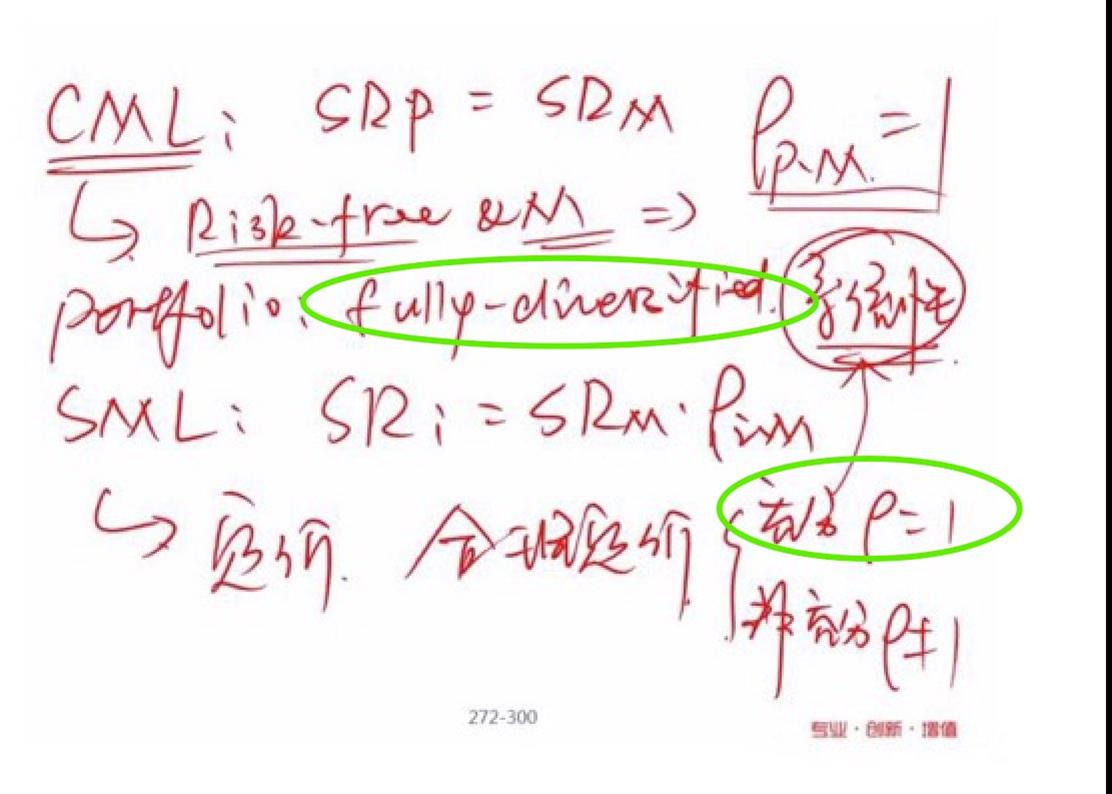 CML: SRp = SRM ρp.M = 1
↳ Risk-free & M ⇒
portfolio: fully-diversified.
SML: SRi = SRM · ρi,M
↳ 定价. 合理定价 { 充分 ρ=1
非充分 ρ≠1
272-300
专业·创新·增值